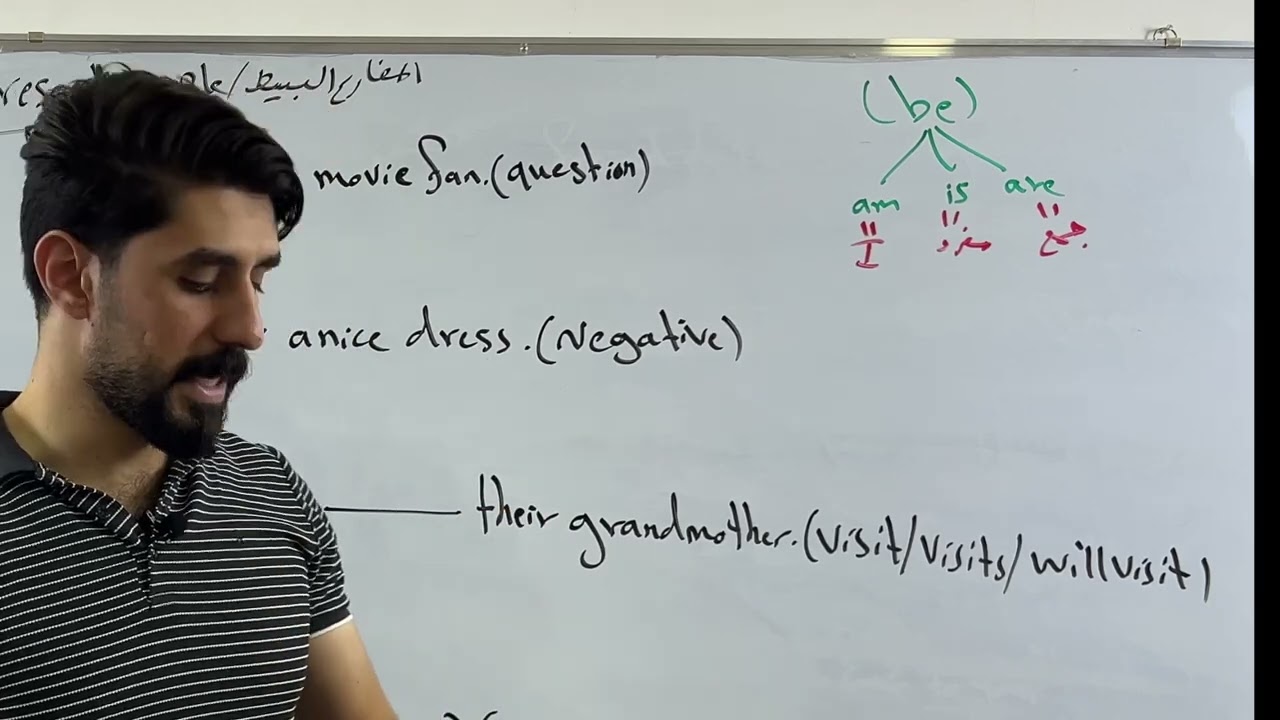 المضارع البسيط/
movie fan.(question)
a nice dress.(Negative)
their grandmother.(visit/visits/will visit)
(be)
am is are
" " "
I مفرد جمع